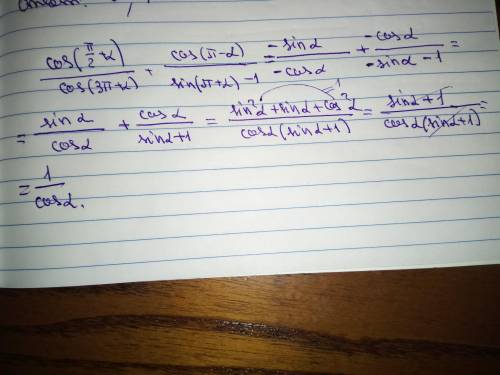 cos(π/2+α)/cos(3π+α) + cos(π-α)/(sin(π+α)-1) = -sinα/-cosα + -cosα/(-sinα-1) =
= sinα/cosα + cosα/(sinα+1) = (sin²α+sinα+cos²α)/(cosα(sinα+1)) = (sinα+1)/(cosα(sinα+1)) =
= 1/cosα.